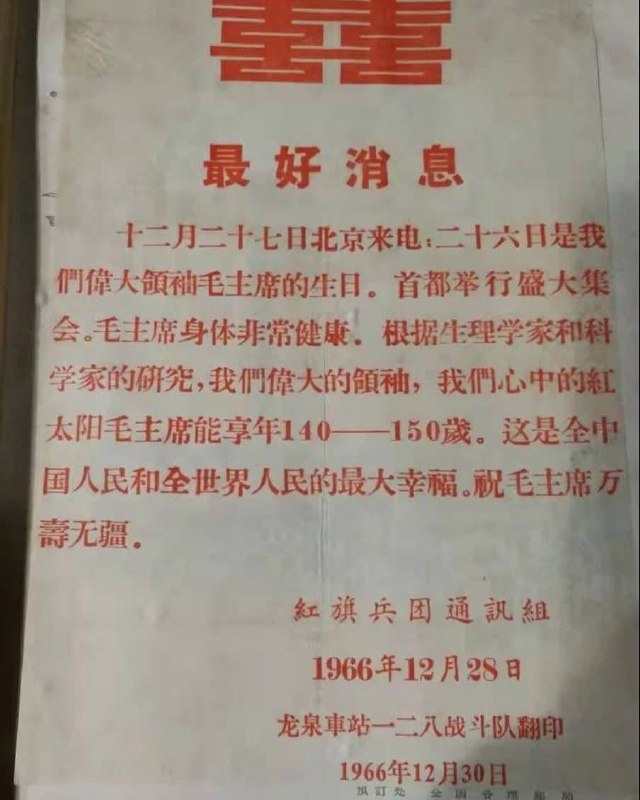 囍
最好消息
十二月二十七日北京来电：二十六日是我
們偉大領袖毛主席的生日。首都举行盛大集
会。毛主席身体非常健康。根据生理学家和科
学家的研究，我們偉大的領袖，我們心中的紅
太阳毛主席能享年140——150歲。这是全中
国人民和全世界人民的最大幸福。祝毛主席万
壽无疆。
紅旗兵团通訊組
1966年12月28日
龙泉車站一二八战斗队翻印
1966年12月30日
预訂处 全国各地邮局